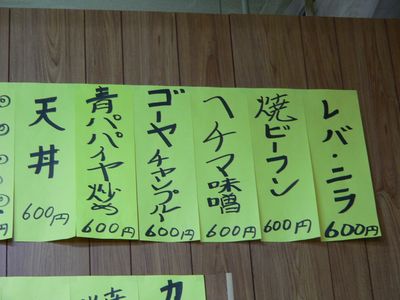 レバ・ニラ
600円
焼ビーフン
600円
ヘチマ味噌
600円
ゴーヤチャンプルー
600円
青パパイヤ炒め
600円
天丼
600円